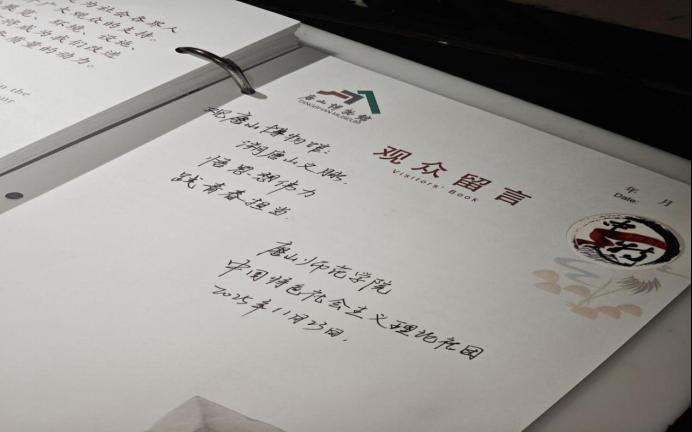 为社会各界人
广大观众的支持。
环境、设施、
将成为我们改进
重要的动力。
in the
our
唐山博物馆
TANGSHAN MUSEUM
观众留言
Visitors' Book
年 月
Date:
观唐山博物馆:
溯唐山文脉,
悟思想伟力
践青春担当.
唐山师范学院
中国特色社会主义理论社团
2025年11月23日.